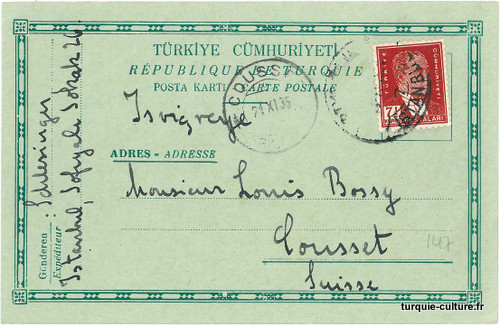 TÜRKİYE CÜMHURİYETİ
RÉPUBLIQUE DE TURQUIE
POSTA KARTI CARTE POSTALE
COUSSET
21.XI.35
TÜRKİYE
CUMHURİYETİ
7½
İSTANBUL
Isviçreye
ADRES - ADRESSE
Monsieur Louis Bossy
Cousset
Suisse
147
Gönderen
Expéditeur
Schlesinger
Istanbul, Sofyali Sokak 26.
turquie-culture.fr